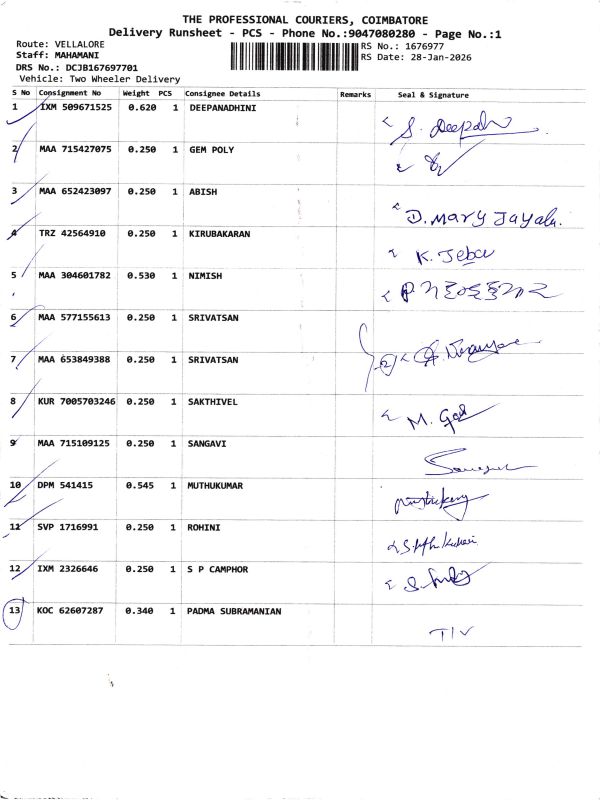 THE PROFESSIONAL COURIERS, COIMBATORE
Delivery Runsheet - PCS - Phone No.:9047080280 - Page No.:1
Route: VELLALORE
Staff: MAHAMANI
DRS No.: DCJB167697701
Vehicle: Two Wheeler Delivery
RS No.: 1676977
RS Date: 28-Jan-2026
S No Consignment No Weight PCS Consignee Details Remarks Seal & Signature
1 IXM 509671525 0.620 1 DEEPANADHINI S. Deepadh
2 MAA 715427075 0.250 1 GEM POLY
3 MAA 652423097 0.250 1 ABISH D. Mary Jayala.
4 TRZ 42564910 0.250 1 KIRUBAKARAN K. Jeba
5 MAA 304601782 0.530 1 NIMISH
6 MAA 577155613 0.250 1 SRIVATSAN
7 MAA 653849388 0.250 1 SRIVATSAN 2
8 KUR 7005703246 0.250 1 SAKTHIVEL M.
9 MAA 715109125 0.250 1 SANGAVI
10 DPM 541415 0.545 1 MUTHUKUMAR
11 SVP 1716991 0.250 1 ROHINI
12 IXM 2326646 0.250 1 S P CAMPHOR
13 KOC 62607287 0.340 1 PADMA SUBRAMANIAN TIV